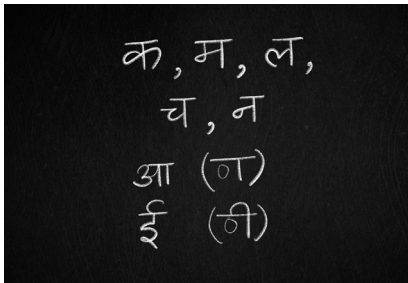 क, म, ल,
च, न
आ (ा)
ई (ी)